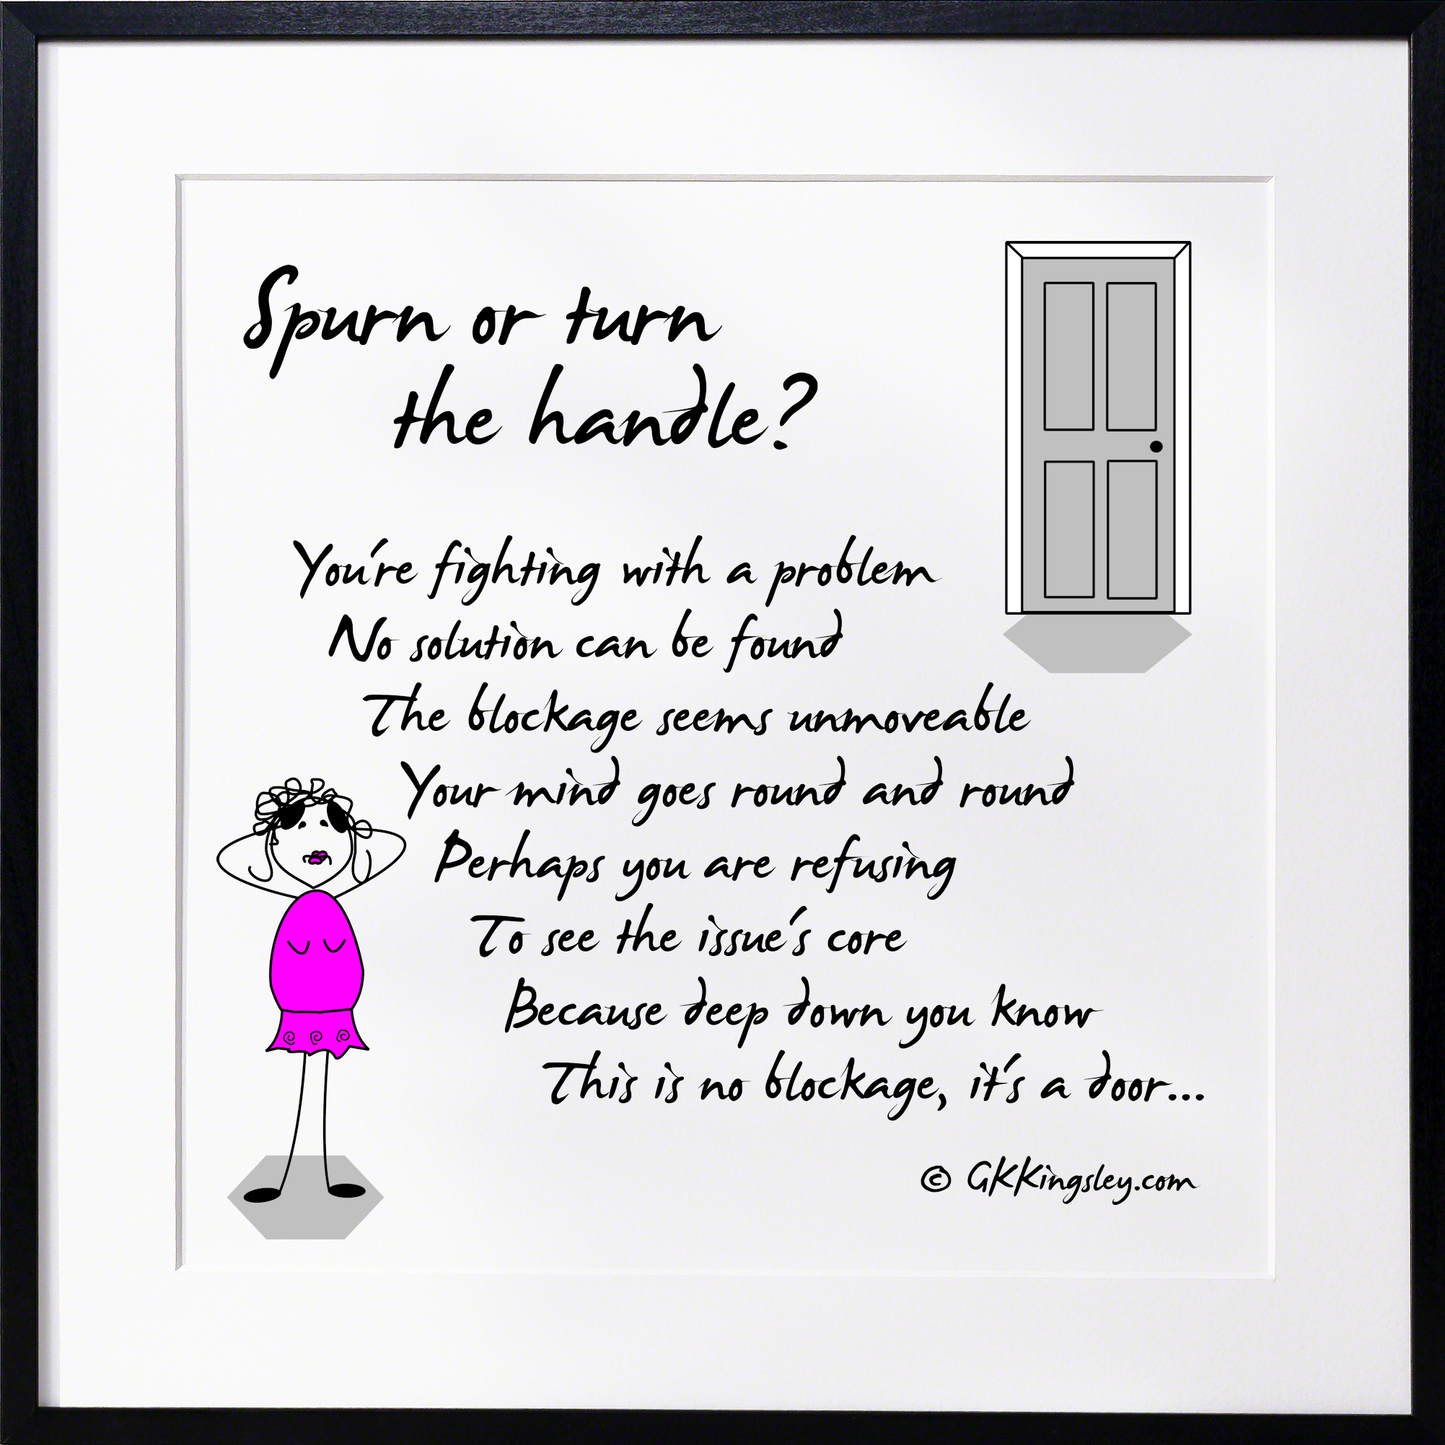 Spurn or turn
the handle?
You're fighting with a problem
No solution can be found
The blockage seems unmoveable
Your mind goes round and round
Perhaps you are refusing
To see the issue's core
Because deep down you know
This is no blockage, it's a door...
© GKKingsley.com